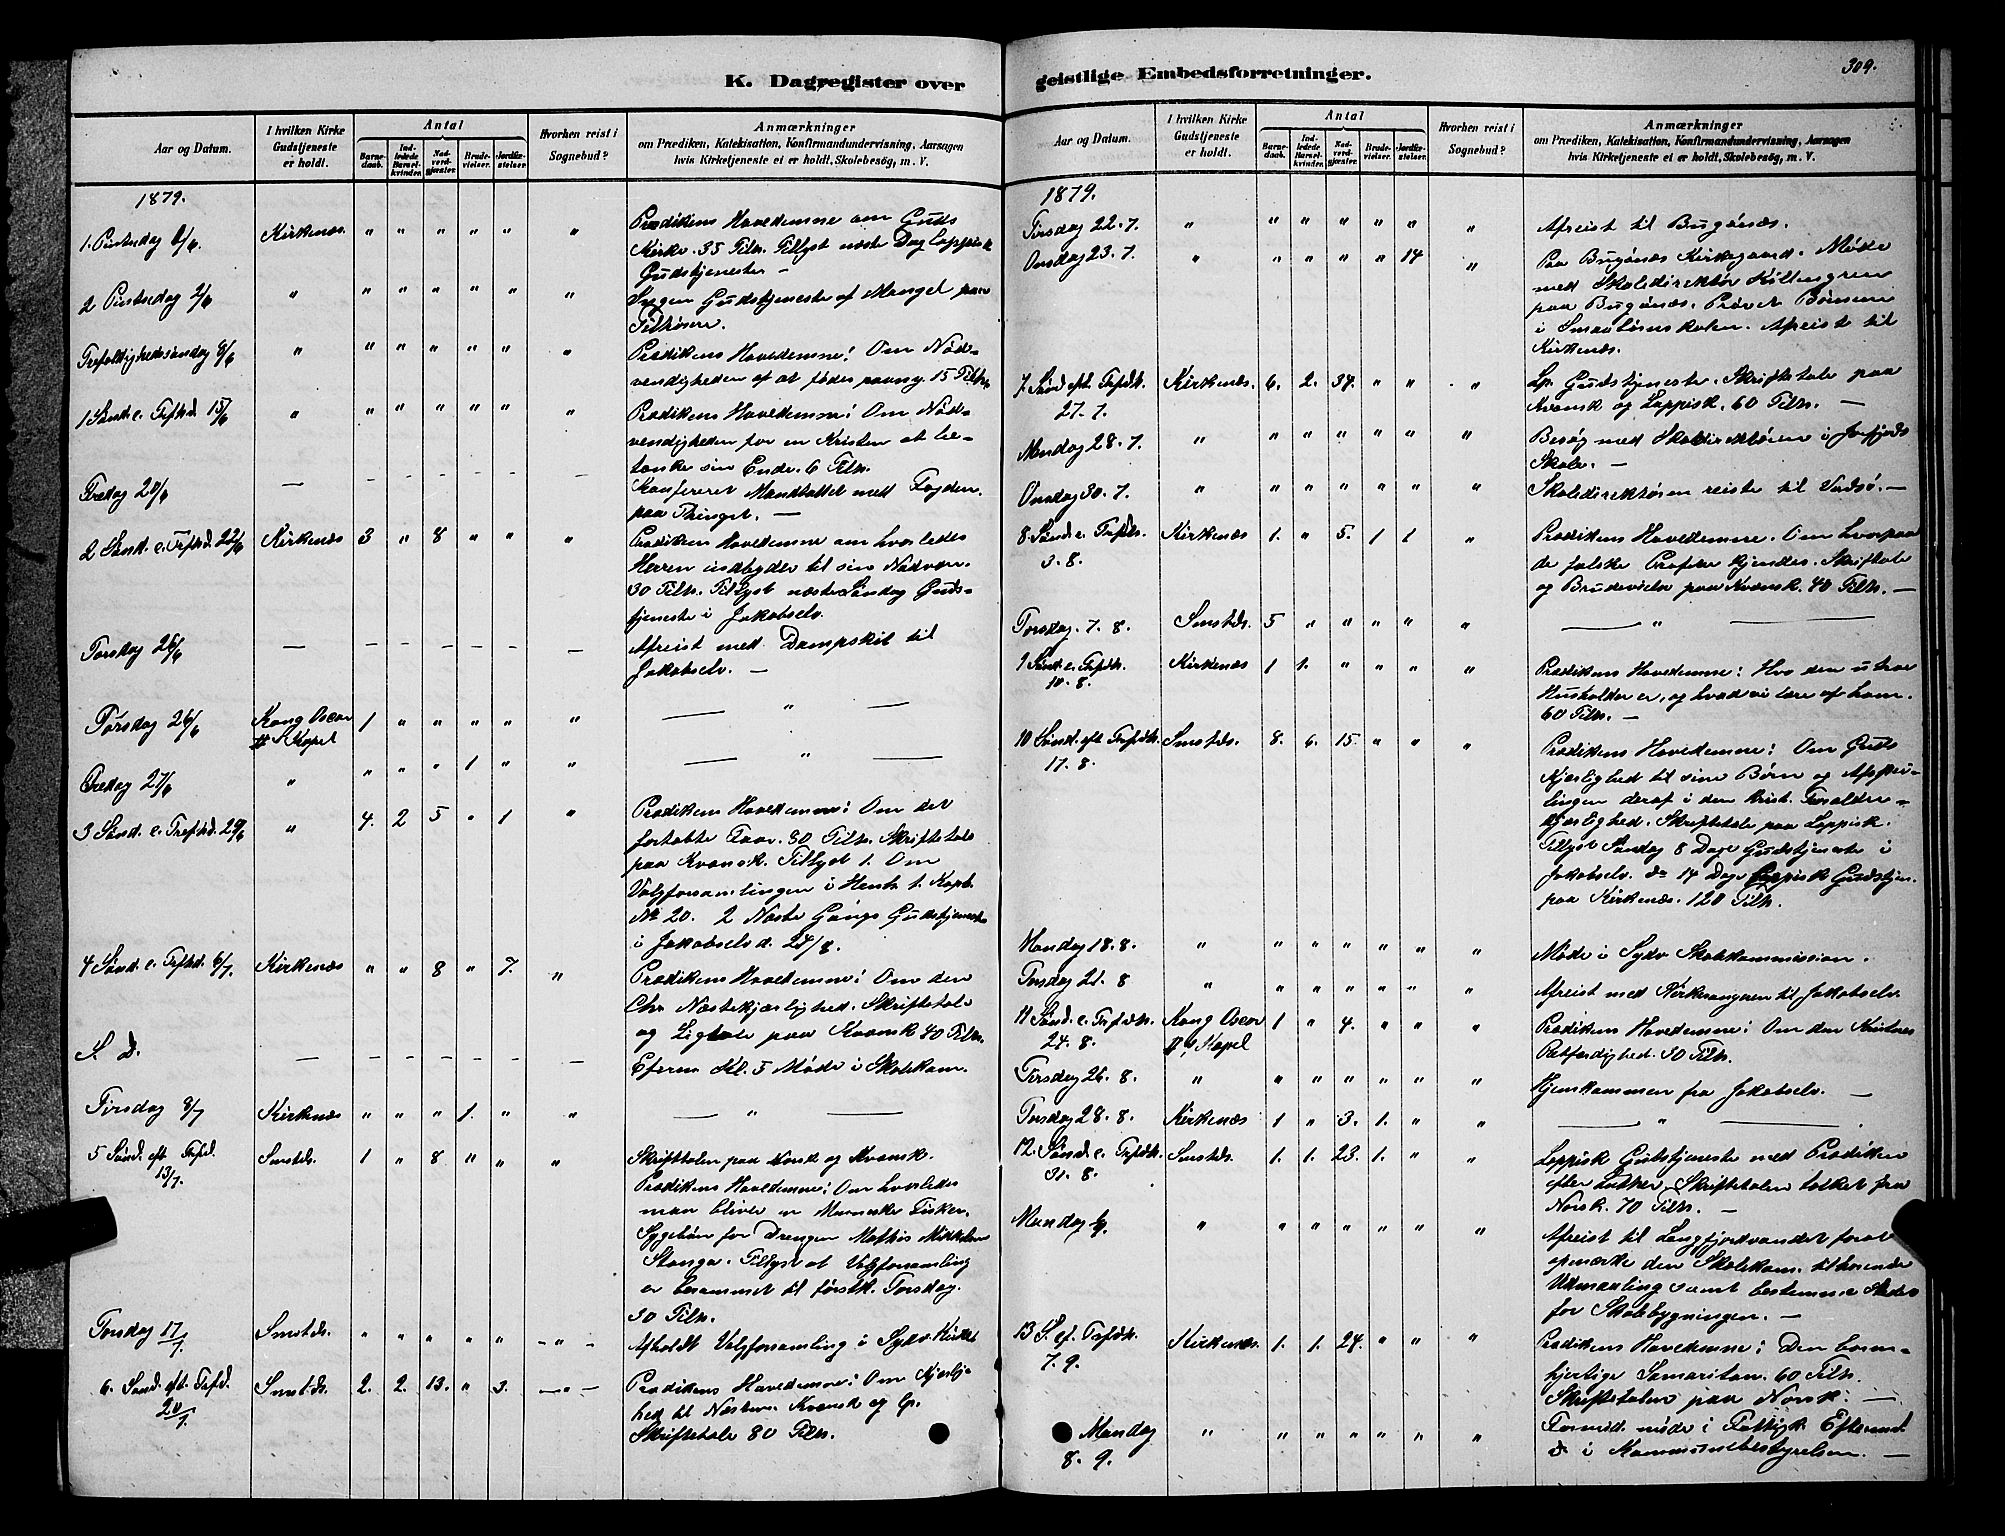 K. Dagregister over
Aar og Datum.
I hvilken Kirke
Gudstjeneste
er holdt.
Antal
Barne-
daab.
Ind-
ledede
Barsel-
kvinder.
Nad-
verd-
gjæster.
Brude-
vielser.
Jordfæ-
stelser.
Hvorhen reist i
Sognebud?
Anmærkninger
om Prædiken, Katekisation, Konfirmandundervisning, Aarsagen
hvis Kirketjeneste ei er holdt, Skolebesög, m. V.
1879.
1. Pintsedag 1/6. Kirkenæs. " " " " " " Prædikens Hovedemne om Guds
Kirke. 35 Tilh. Tillyst næste Dag Lappisk
Gudstjeneste —
2 Pintsedag 2/6 " " " " " " " Ingen Gudstjeneste af Mangel paa
Tilhörere.
Trefoldighedssöndag 8/6 " " " " " " " Prædikens Hovedemne: Om Nöd-
vendigheden af at fødes paany. 15 Tilh.
1 Sönd. e. Trefhd. 15/6 " " " " " " " Prædikens Hovedemne: Om Nöd-
vendigheden for en Kristen at be-
tænke sin Ende. 6 Tilh.
Fredag 20/6 — - - - - - - Konfereret Mandtallet med Fogden
paa Thinget. —
2 Sönd. e. Trefhd. 22/6 Kirkenæs 3 " 8 " " " Prædikens Hovedemne om hvorledes
Herren indbyder til sin Nadver.
30 Tilh. Tillyst næste Söndag Guds-
tjeneste i Jakobselv.
Torsdag 26/6 — - - - - - — Afreist med Dampskib til
Jakobselv. —
Torsdag 26/6 Kong Oscar 1 " " " " " — " —
II s Kapel
Fredag 27/6 " " " " 1 " " — " —
3 Sönd. e. Trefhd. 29/6 " 4. 2 5 " 1 " Prædikens Hovedemne: Om det
fortabte Faar. 30 Tilh. Skriftetale
paa Kvænsk. Tillyst 1. Om
Valgforsamlingen i Henh. t. Kapt.
No 20. 2 Næste Gangs Gudstjeneste
i Jakobselv d. 24/8.
4 Sönd. e. Trefhd. 6/7. Kirkenæs " " 8 " 7. " Prædikens Hovedemne: Om den
Chr. Næstekjærlighed. Skriftetale
og Ligtale paa Kvænsk 40 Tilh.
S. d. — - - - - - — Efterm. Kl. 5 Möde i Skolekom.
Tirsdag 8/7 Kirkenæs " " " 1. " " — " —
5 Sönd. eft. Trefd. Smstds. 1 " 8 " " " Skriftetalen paa Norsk og Kvænsk.
13/7. Prædikens Hovedemne: Om hvorledes
man bliver en Menneske Fisker.
Sygebön for Drengen Mathis Mikkelsen
Stanga. Tillyst at Valgforsamling
er berammet til förstk. Torsdag.
30 Tilh.
Torsdag 17/7. Smstds. " " " " " - " - Afholdt Valgforsamling i Sydv. Kirke
6. Sönd. eft. Trefd. Smstds. 2. 2. 13. " 3. — " — Prædikens Hovedemne: Om Kjærlig-
20/7. hed til Næsten. Kvænsk og Lp.
Skriftetale 80 Tilh.
geistlige Embedsforretninger.
309.
Aar og Datum.
I hvilken Kirke
Gudstjeneste
er holdt.
Antal
Barne-
daab.
Ind-
ledede
Barsel-
kvinder.
Nad-
verd-
gjæster.
Brude-
vielser.
Jordfæ-
stelser.
Hvorhen reist i
Sognebud?
Anmærkninger
om Prædiken, Katekisation, Konfirmandundervisning, Aarsagen
hvis Kirketjeneste ei er holdt, Skolebesög, m. V.
1879.
Tirsdag 22. 7. " " " " " " " Afreist til Bugönæs.
Onsdag 23. 7. " " " " " 14 " Paa Bugönæs Kirkegaard. Møde
med Skoledirektör Killengren
paa Bugönæs. Prövet Börnene
i Smaabörnskolen. Afreist til
Kirkenæs.
7. Sönd. eft. Trefdh. Kirkenæs. 6. 2. 34. " " " Lp. Gudstjeneste. Skriftetale paa
27. 7. Kvænsk og Lappisk. 60 Tilh. —
Mandag 28. 7. " " " " " " " Besög med Skoledirektören i Jarfjords
Skole. —
Onsdag 30. 7. " " " " " " " Skoledirektören reiste til Vadsö. —
8. Sönd. e. Trefdh. Kirkenæs 1. " 5. 1 1 " Prædikens Hovedemne. Om hvorpaa
3. 8. de falske Profeter kjendes. Skriftetale
og Brudevielse paa Kvænsk. 40 Tilh. —
Torsdag. 7. 8. Smstds. 5 " " " " " — " —
9 Sönd. e. Trefdh. Kirkenæs 1 1. " " " " Prædikens Hovedemne: Hvo den utroe
10. 8. Husholder er, og hvad vi lære af ham.
60 Tilh. —
10 Sönd. eft. Trefdh. Smstds. 8. 6. 15. " " " Prædikens Hovedemne: Om Guds
17. 8. Kjærlighed til sine Börn og Afspei-
lingen deraf i den krist. Forældre-
kjærlighed. Skriftetale paa Lappisk.
Tillyst Söndag 8 Dage Gudstjeneste i
Jakobselv. do 14 Dage Lappisk Gudstjen.
paa Kirkenæs. 120 Tilh.
Mandag 18. 8. " " " " " " " Möde i Sydv. Skolekommission.
Torsdag 21. 8 " " " " " " " Afreist med Kirkesangeren til Jakobselv.
11 Sönd. e. Trefdh. Kong Oscar 1 " 4. " " " Prædikens Hovedemne: Om den Kristnes
24. 8. II s Kapel Retfærdighed. 30 Tilh.
Tirsdag 26. 8. " " " " " " " Hjemkommen fra Jakobselv. —
Torsdag 28. 8. Kirkenæs 1 " 3. 1. " " — " —
12. Sönd. e. Trefdh. Smstds. 1. 1. 23. 1. " " Lappisk Gudstjeneste med Prædiken
31. 8. efter Luther. Skriftetalen tolket fra
Norsk. 70 Tilh. —
Mandag 1/9. " " " " " " " Afreist til Langfjordvandet for at
opmærke den Skolekom. tilhörende
Udmaaling samt bestemme Stedet
for Skolebygningen. —
13 S. ef. Trefdh. Kirkenæs. 1. 1. 24. " " " Prædikens Hovedemne: Den barm-
7. 9. hjertige Samaritan. 60 Tilh.
Skriftetalen paa Norsk. —
Mandag " " " " " " " Formid. möde i Fattigk. Efterm.
8. 9. d. i Kommunebestyrelsen. —